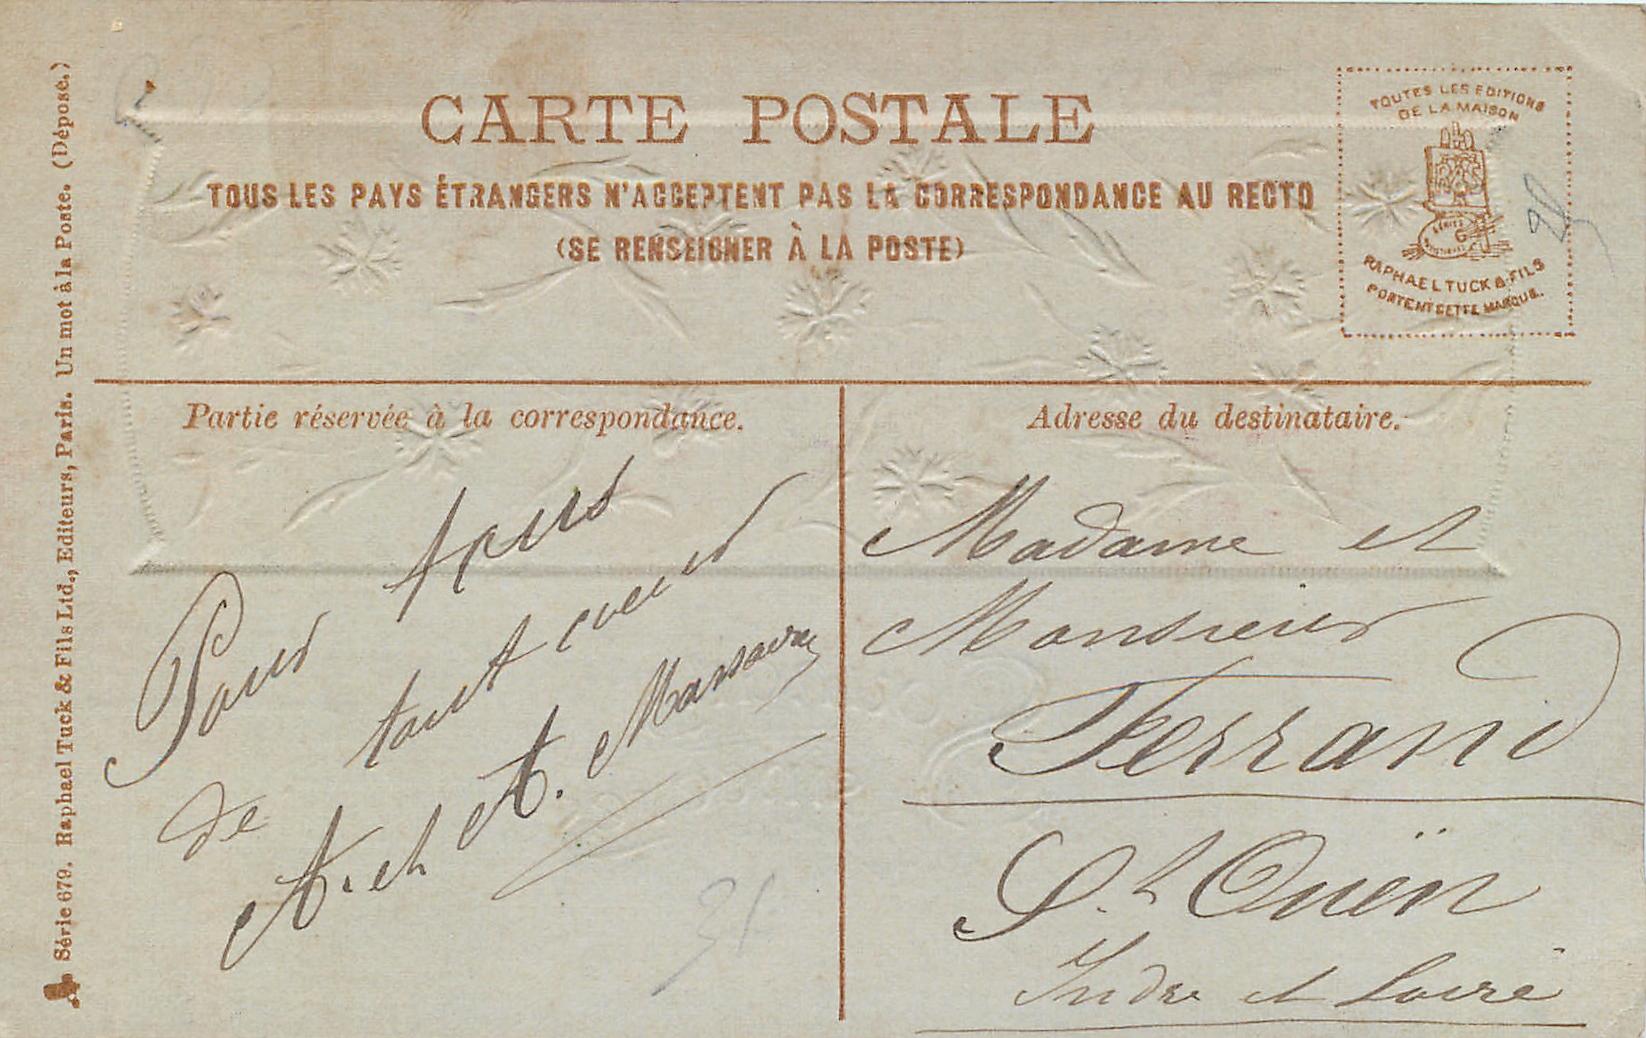 CARTE POSTALE
TOUS LES PAYS ÉTRANGERS N'ACCEPTENT PAS LA CORRESPONDANCE AU RECTO
(SE RENSEIGNER À LA POSTE)
TOUTES LES EDITIONS
DE LA MAISON
RAPHAEL TUCK & FILS
PORTENT CETTE MARQUE.
Série 679. Raphael Tuck & Fils Ltd., Editeurs, Paris. Un mot à la Poste. (Déposé.)
Partie réservée à la correspondance.
Pour tous
de tout coeur
A. et A.
Adresse du destinataire.
Madame et
Monsieur
Ferrand
St Ouën
Indre et Loire